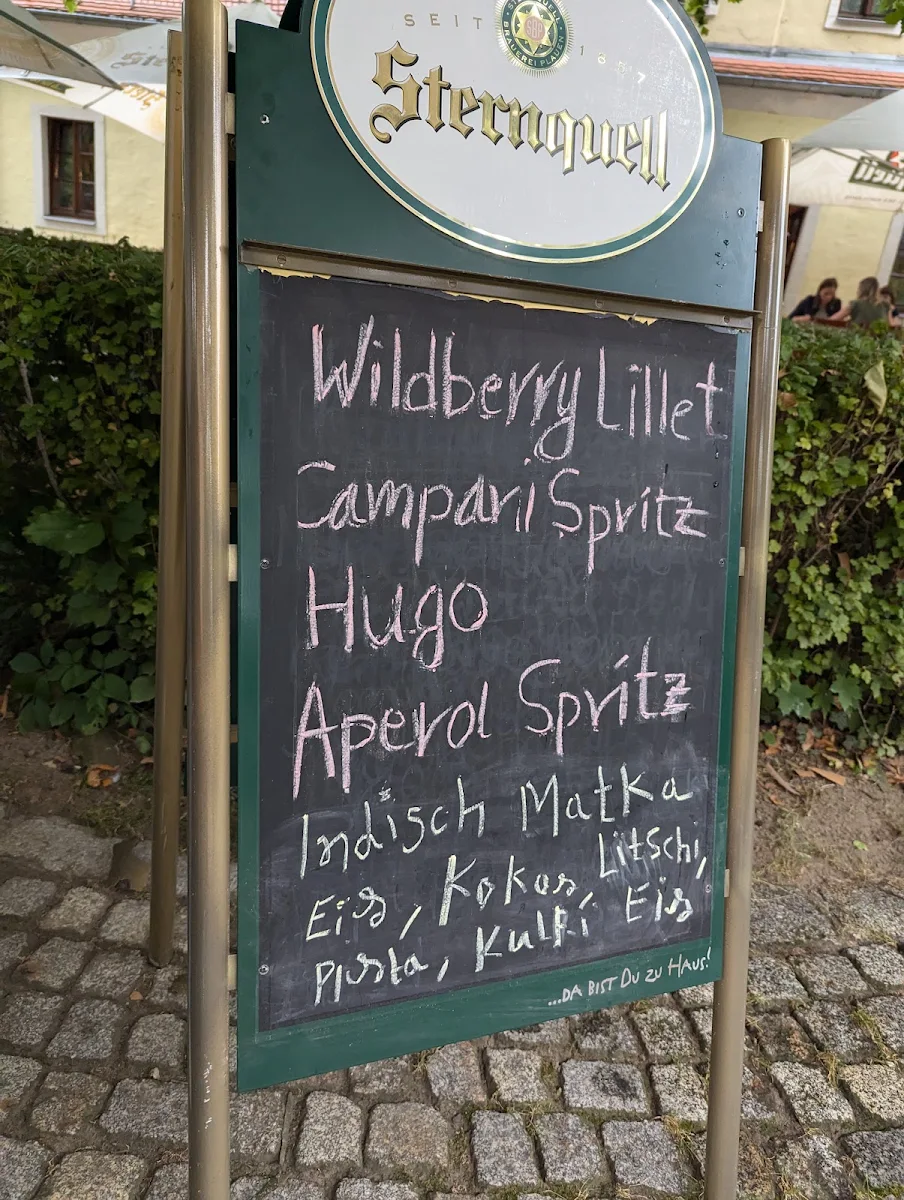 SEIT 1857
STERNQUELL
BRAUEREI PLAUEN
Sternquell
Wildberry Lillet
Campari Spritz
Hugo
Aperol Spritz
Indisch Matka
Eis, Kokos Litschi,
Pista, Kulfi Eis
...DA BIST DU ZU HAUS!